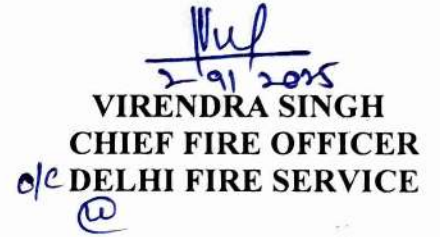 2/9/2025
VIRENDRA SINGH
CHIEF FIRE OFFICER
o/c DELHI FIRE SERVICE